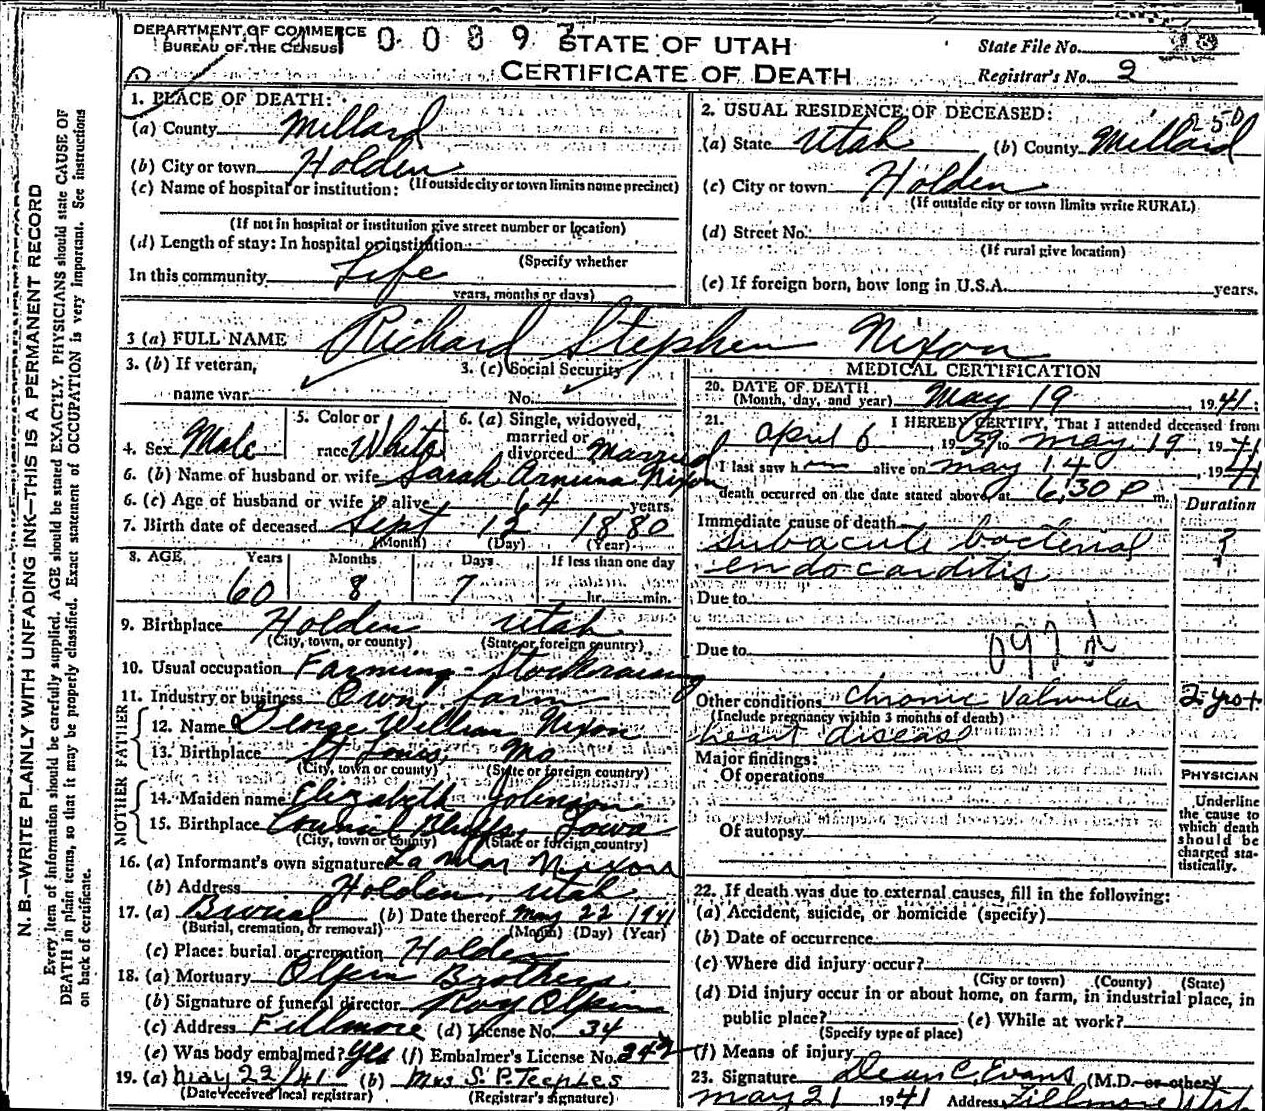 DEPARTMENT OF COMMERCE
BUREAU OF THE CENSUS
STATE OF UTAH
CERTIFICATE OF DEATH
State File No.
Registrar's No. 2
1. PLACE OF DEATH:
(a) County Millard
(b) City or town Holden
(If outside city or town limits name precinct)
(c) Name of hospital or institution:
(If not in hospital or institution give street number or location)
(d) Length of stay: In hospital or institution
(Specify whether
In this community Life
years, months or days)
2. USUAL RESIDENCE OF DECEASED:
(a) State Utah (b) County Millard
(c) City or town Holden
(If outside city or town limits write RURAL)
(d) Street No.
(If rural give location)
(e) If foreign born, how long in U.S.A. years.
3 (a) FULL NAME Richard Stephen Nixon
3. (b) If veteran,
name war
3. (c) Social Security
No.
4. Sex Male
5. Color or
race White
6. (a) Single, widowed,
married or
divorced Married
6. (b) Name of husband or wife Sarah Nixon
6. (c) Age of husband or wife if alive 64 years.
7. Birth date of deceased Sept 12 1880
(Month) (Day) (Year)
8. AGE Years Months Days If less than one day
60 8 7 hr. min.
9. Birthplace Holden Utah
(City, town, or county) (State or foreign country)
10. Usual occupation Farming - Stockraising
11. Industry or business Own farm
FATHER
12. Name George William Nixon
13. Birthplace St Louis, Mo
(City, town or county) (State or foreign country)
MOTHER
14. Maiden name Elizabeth Johnson
15. Birthplace Council Bluffs, Iowa
(City, town or county) (State or foreign country)
16. (a) Informant's own signature La Mar Nixon
(b) Address Holden, Utah
17. (a) Burial (b) Date thereof May 22 1941
(Burial, cremation, or removal) (Month) (Day) (Year)
(c) Place: burial or cremation Holden
18. (a) Mortuary Olpin Brothers
(b) Signature of funeral director Roy Olpin
(c) Address Fillmore (d) License No. 34
(e) Was body embalmed? Yes (f) Embalmer's License No. 242
19. (a) May 23/41 (b) Mrs S. P. Teeples
(Date received local registrar) (Registrar's signature)
MEDICAL CERTIFICATION
20. DATE OF DEATH
(Month, day, and year) May 19, 1941.
21. I HEREBY CERTIFY, That I attended deceased from
April 6, 1939 to May 19, 1941
I last saw him alive on May 14, 1941
death occurred on the date stated above, at 6:30 P m.
Duration
Immediate cause of death
subacute bacterial ?
endocarditis
Due to
Due to
Other conditions chronic valvular 2 yrs+
(Include pregnancy within 3 months of death)
heart disease
Major findings:
Of operations
Of autopsy
PHYSICIAN
Underline
the cause to
which death
should be
charged sta-
tistically.
22. If death was due to external causes, fill in the following:
(a) Accident, suicide, or homicide (specify)
(b) Date of occurrence
(c) Where did injury occur?
(City or town) (County) (State)
(d) Did injury occur in or about home, on farm, in industrial place, in
public place? (e) While at work?
(Specify type of place)
(f) Means of injury
23. Signature Dean C. Evans (M.D. or other)
May 21 1941 Address Fillmore Utah
N. B.—WRITE PLAINLY WITH UNFADING INK—THIS IS A PERMANENT RECORD
Every item of information should be carefully supplied. AGE should be stated EXACTLY. PHYSICIANS should state CAUSE OF
DEATH in plain terms, so that it may be properly classified. Exact statement of OCCUPATION is very important. See instructions
on back of certificate.